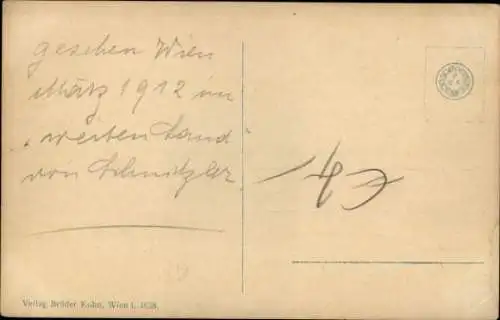 gesehen Wien
März 1912 im
"weiten Land"
von Schnitzler.
4€
Verlag Brüder Kohn, Wien I.